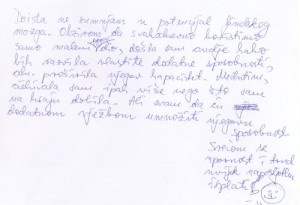 Doista ne sumnjam u potencijal ljudskog
mozga. Obzirom da svakodnevno koristimo
samo maleni dio, došla sam ovdje kako
bih razvila vlastite dodatne sposobnosti,
odn. proširila njegov kapacitet. Međutim,
očekivala sam ipak više nego što sam
na kraju dobila. Ali znam da ću
dodatnom vježbom umnožiti njegovu
sposobnost
Srećom se
upornost i trud
uvijek naposljetku
isplate!